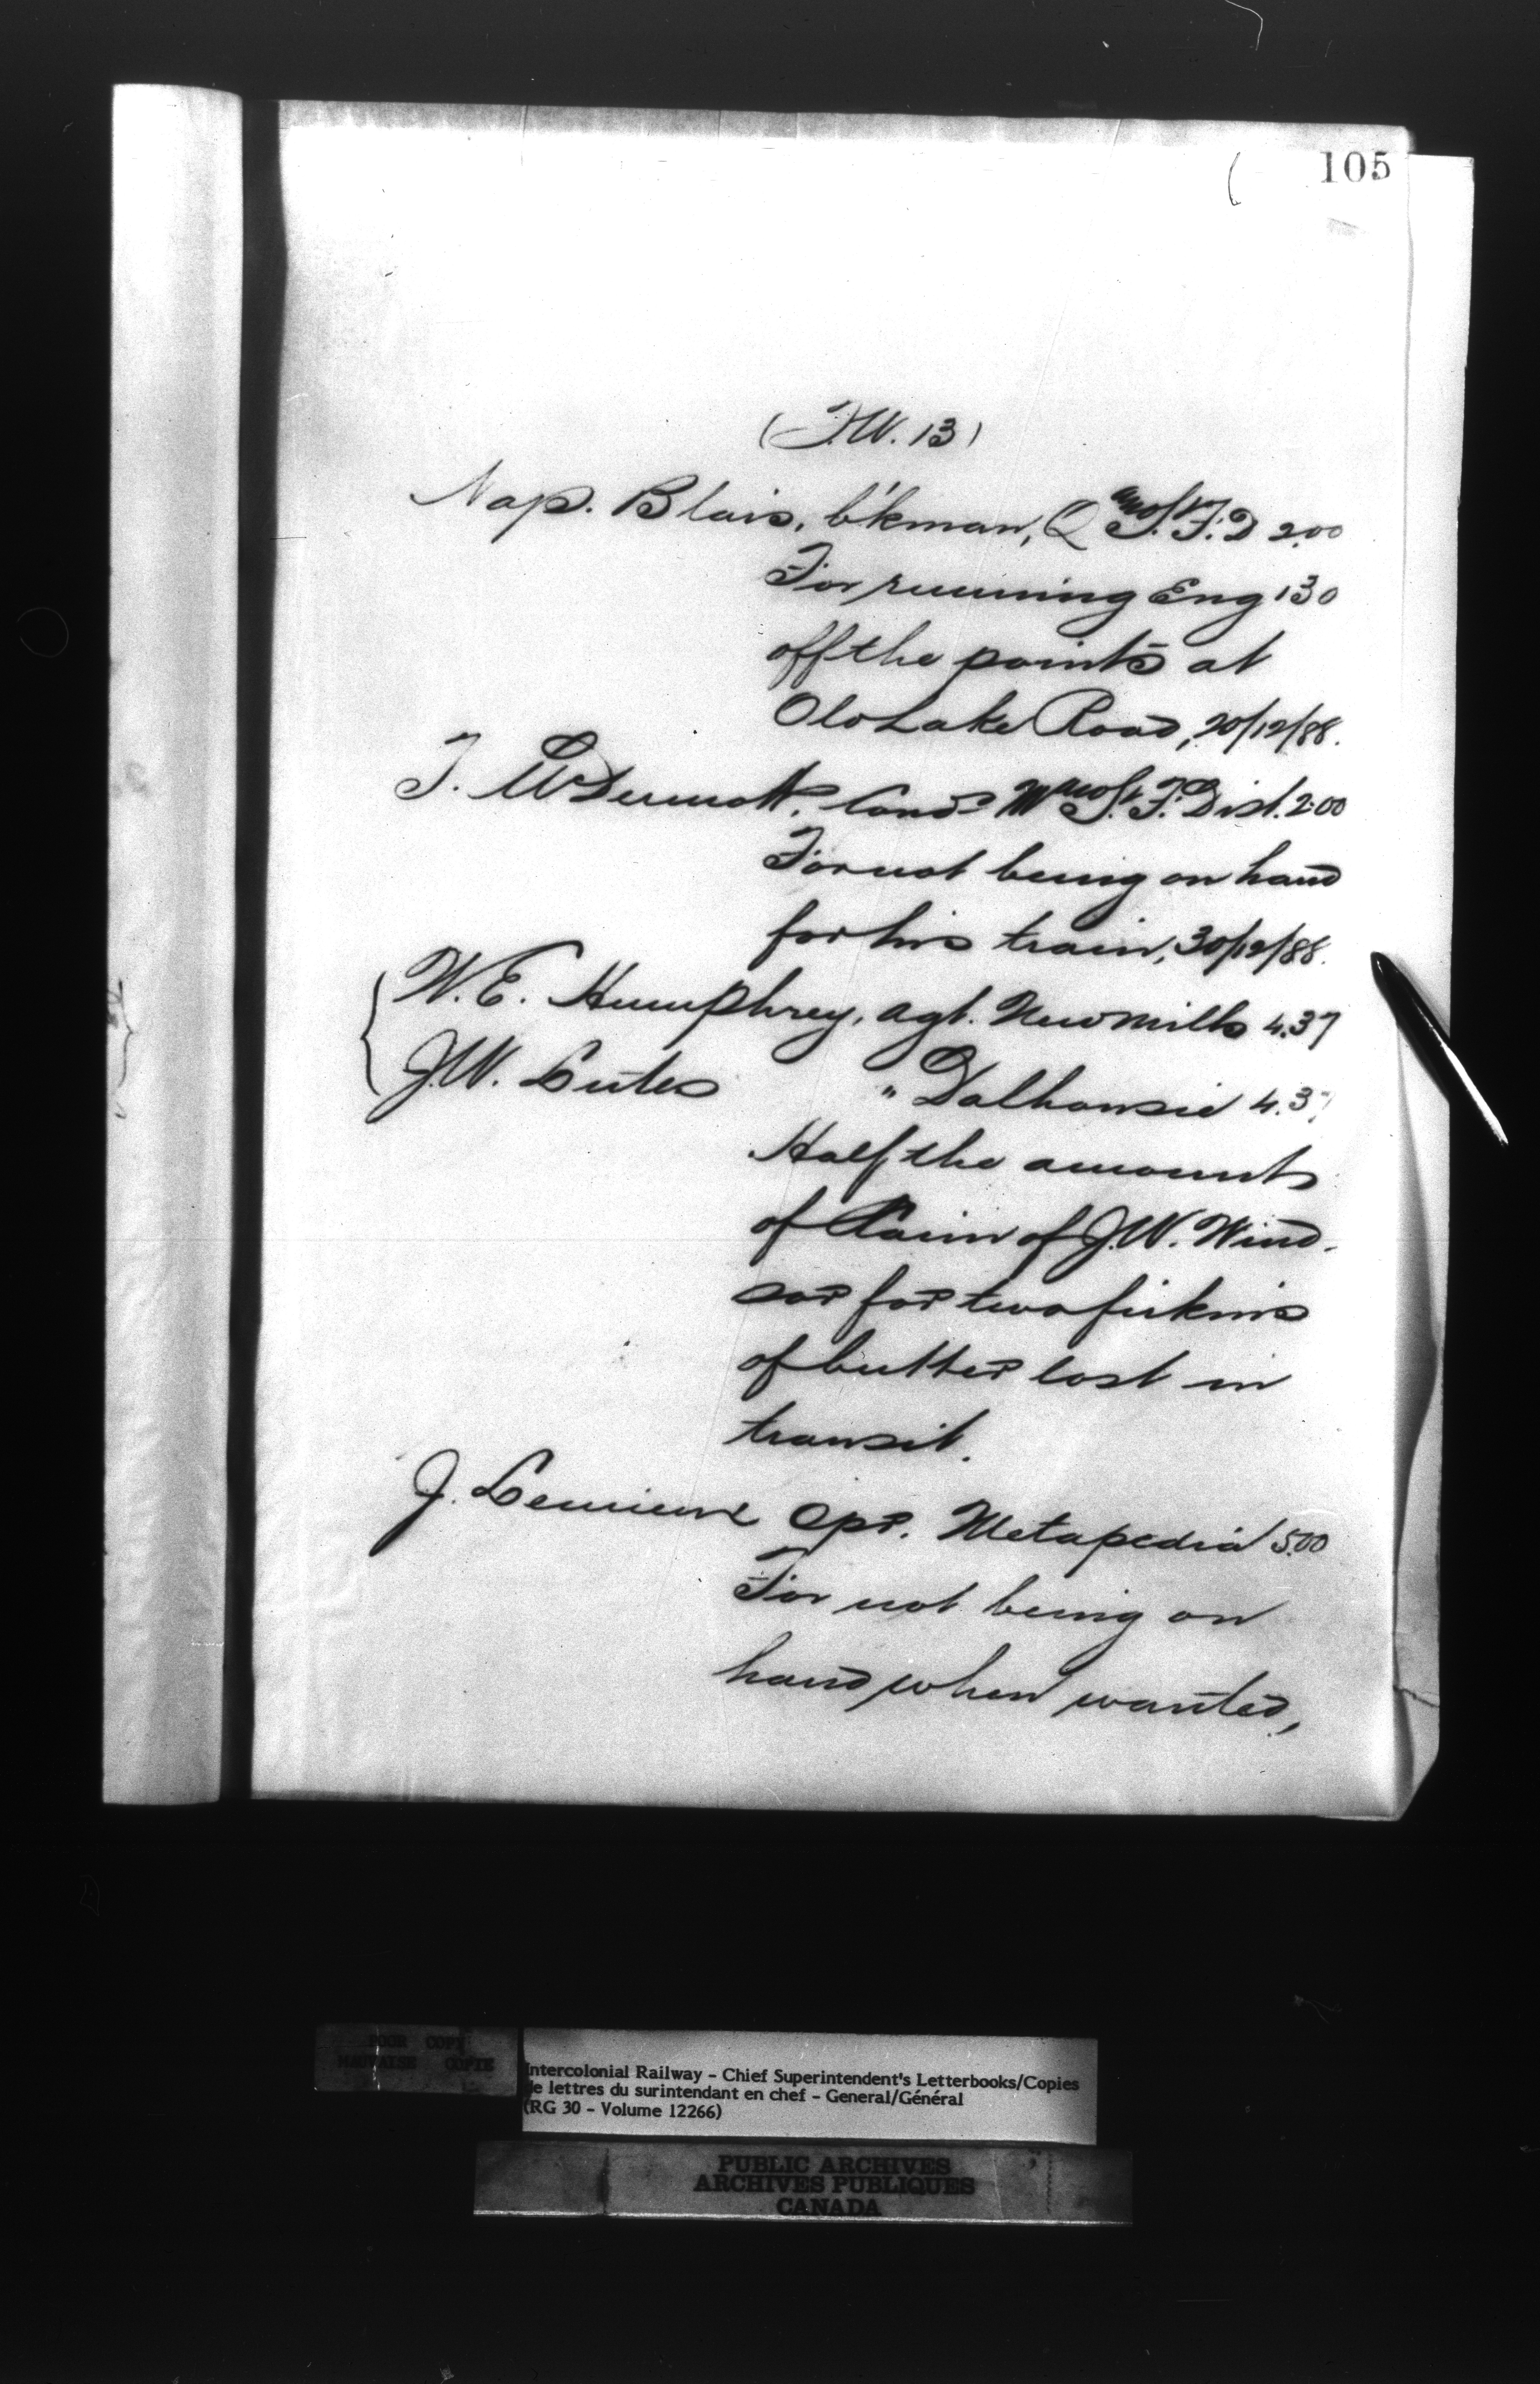 105
(T.W. 13)
Nap. Blais, b'kman, Q and St. F. D 2.00
For running Eng 130
off the points at
Old Lake Road, 20/12/88.
T. McDermott, Cond. M and St. F. Dist. 2.00
For not being on hand
for his train, 30/12/88.
W.E. Humphrey, agt. New Mills 4.37
J.W. Lutes " Dalhousie 4.37
Half the amounts
of Claim of J.W. Wind-
sor for two firkins
of butter lost in
transit.
J. Lemieux Opr. Metapedia 5.00
For not being on
hand when wanted,
POOR COPY
MAUVAISE COPIE
Intercolonial Railway - Chief Superintendent's Letterbooks/Copies
de lettres du surintendant en chef - General/Général
(RG 30 - Volume 12266)
PUBLIC ARCHIVES
ARCHIVES PUBLIQUES
CANADA